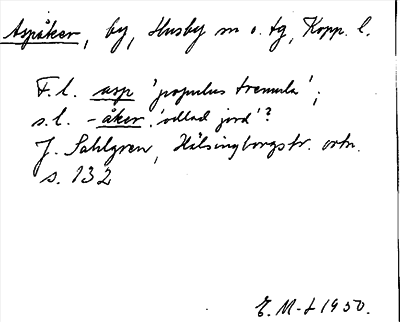 Aspåker, by, Husby sn o. tg, Kopp. l.
F. l. asp 'populus tremula';
s. l. -åker. 'odlad jord'?
J. Sahlgren, Hälsingborgstr. ortn.
s. 132
E. M-L 1950.